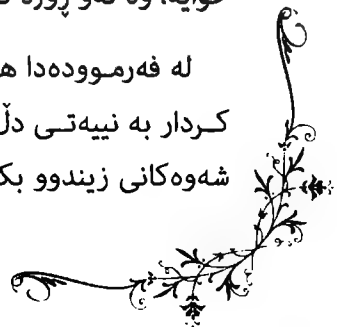 لە فەرمـوودەدا
کـردار بە نییەتـی دڵ
شەوەکانی زیندوو بکـ